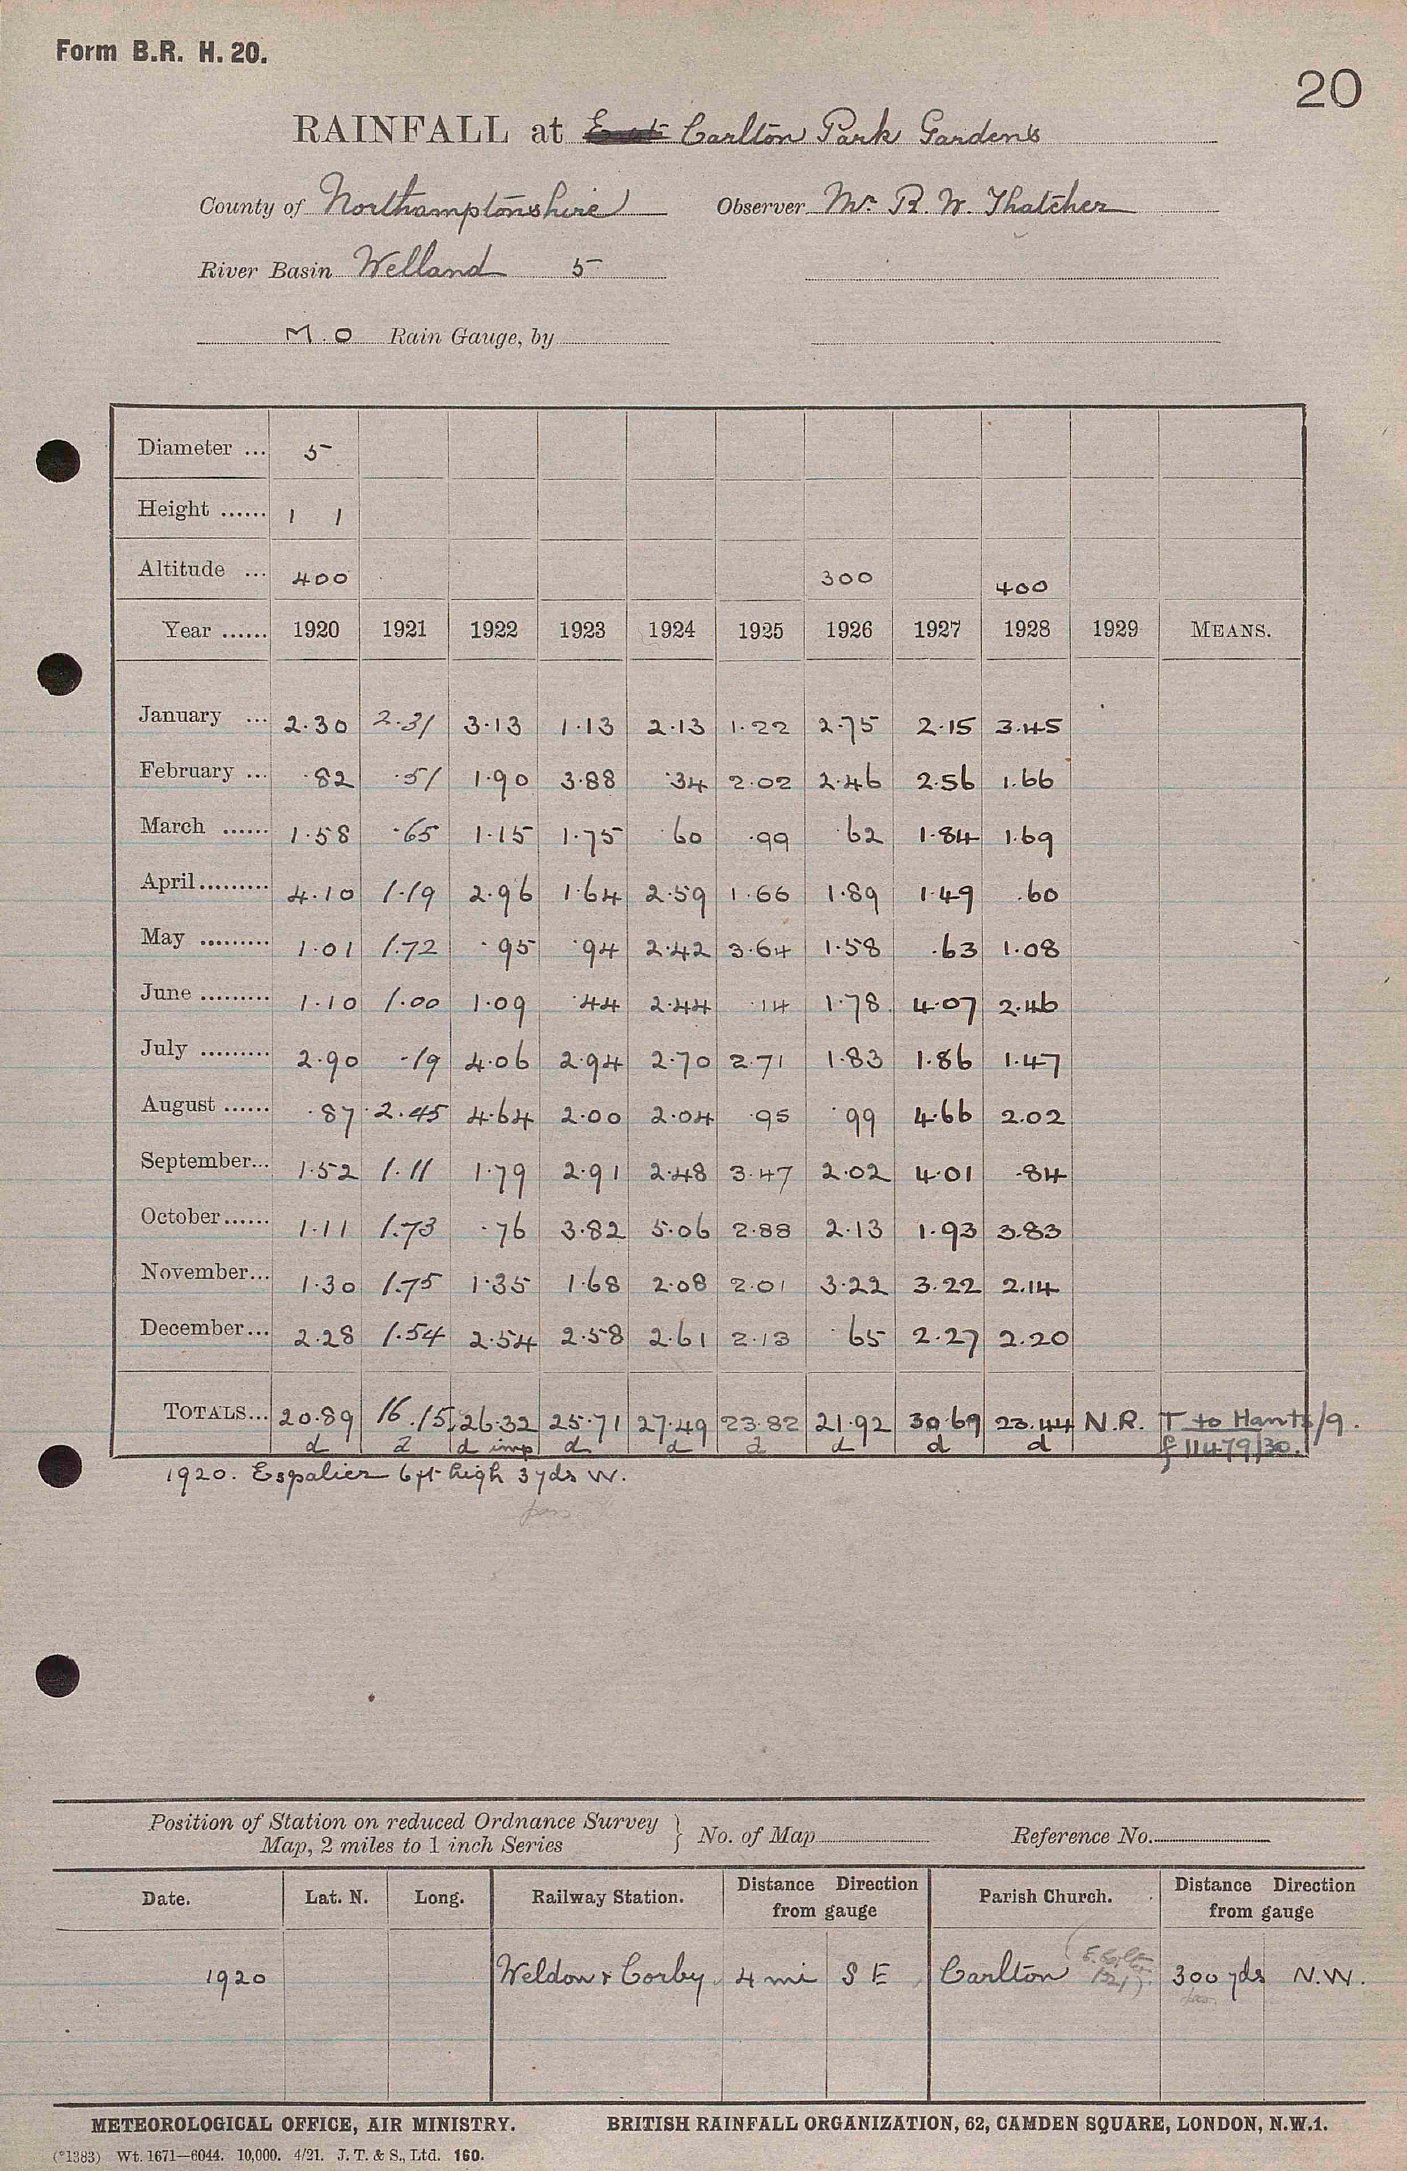 Form B.R. H. 20.
20
RAINFALL at East Carlton Park Gardens
County of Northamptonshire Observer Mr. R. W. Thatcher
River Basin Welland 5
M.O Rain Gauge, by
Diameter ... 5
Height ...... 1 1
Altitude ... 400 300 400
Year ...... 1920 1921 1922 1923 1924 1925 1926 1927 1928 1929 MEANS.
January ... 2.30 2.31 3.13 1.13 2.13 1.22 2.75 2.15 3.45
February ... .82 .51 1.90 3.88 .34 2.02 2.46 2.56 1.66
March ...... 1.58 .65 1.15 1.75 .60 .99 .62 1.84 1.69
April......... 4.10 1.19 2.96 1.64 2.59 1.66 1.89 1.49 .60
May ......... 1.01 1.72 .95 .94 2.42 3.64 1.58 .63 1.08
June ......... 1.10 1.00 1.09 .44 2.44 .14 1.78 4.07 2.46
July ......... 2.90 .19 4.06 2.94 2.70 2.71 1.83 1.86 1.47
August ...... .87 2.45 4.64 2.00 2.04 .95 .99 4.66 2.02
September... 1.52 1.11 1.79 2.91 2.48 3.47 2.02 4.01 .84
October...... 1.11 1.73 .76 3.82 5.06 2.88 2.13 1.93 3.83
November... 1.30 1.75 1.35 1.68 2.08 2.01 3.22 3.22 2.14
December... 2.28 1.54 2.54 2.58 2.61 2.13 .65 2.27 2.20
TOTALS... 20.89 16.15 26.32 25.71 27.49 23.82 21.92 30.69 23.44 N.R. T to Hants/9.
d d d imp d d d d d d f 11479/30.
1920. Espalier 6ft high 3yds W.
Position of Station on reduced Ordnance Survey
Map, 2 miles to 1 inch Series } No. of Map Reference No.
Date. Lat. N. Long. Railway Station. Distance Direction from gauge Parish Church. Distance Direction from gauge
1920 Weldon & Corby 4 mi S E Carlton 300 yds N.W.
METEOROLOGICAL OFFICE, AIR MINISTRY. BRITISH RAINFALL ORGANIZATION, 62, CAMDEN SQUARE, LONDON, N.W.1.
(*1383) Wt. 1671—6044. 10,000. 4/21. J. T. & S., Ltd. 160.